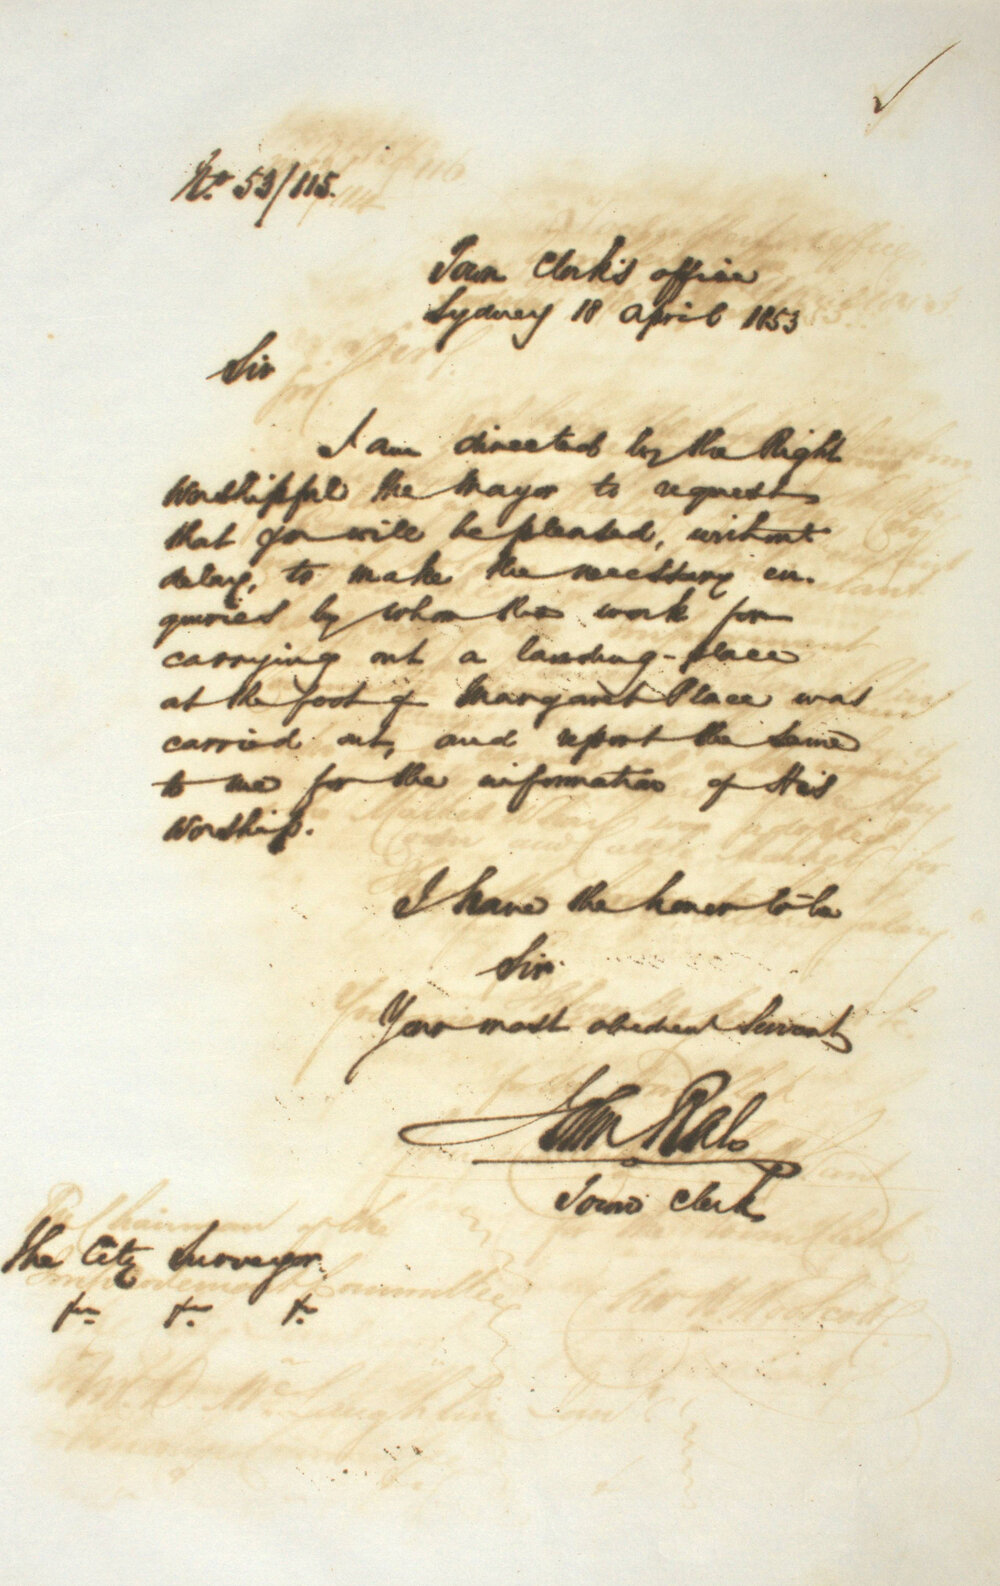 No. 53/115.
Town Clerk's office
Sydney 18 April 1853
Sir
I am directed by the Right
Worshipful the Mayor to request
that you will be pleased, without
delay, to make the necessary en-
quiries by whom the work for
carrying out a landing-place
at the foot of Margaret Place was
carried out, and report the same
to me for the information of His
Worship.
I have the honor to be
Sir
Your most obedient Servant
John Rae
Town Clerk
The City Surveyor.